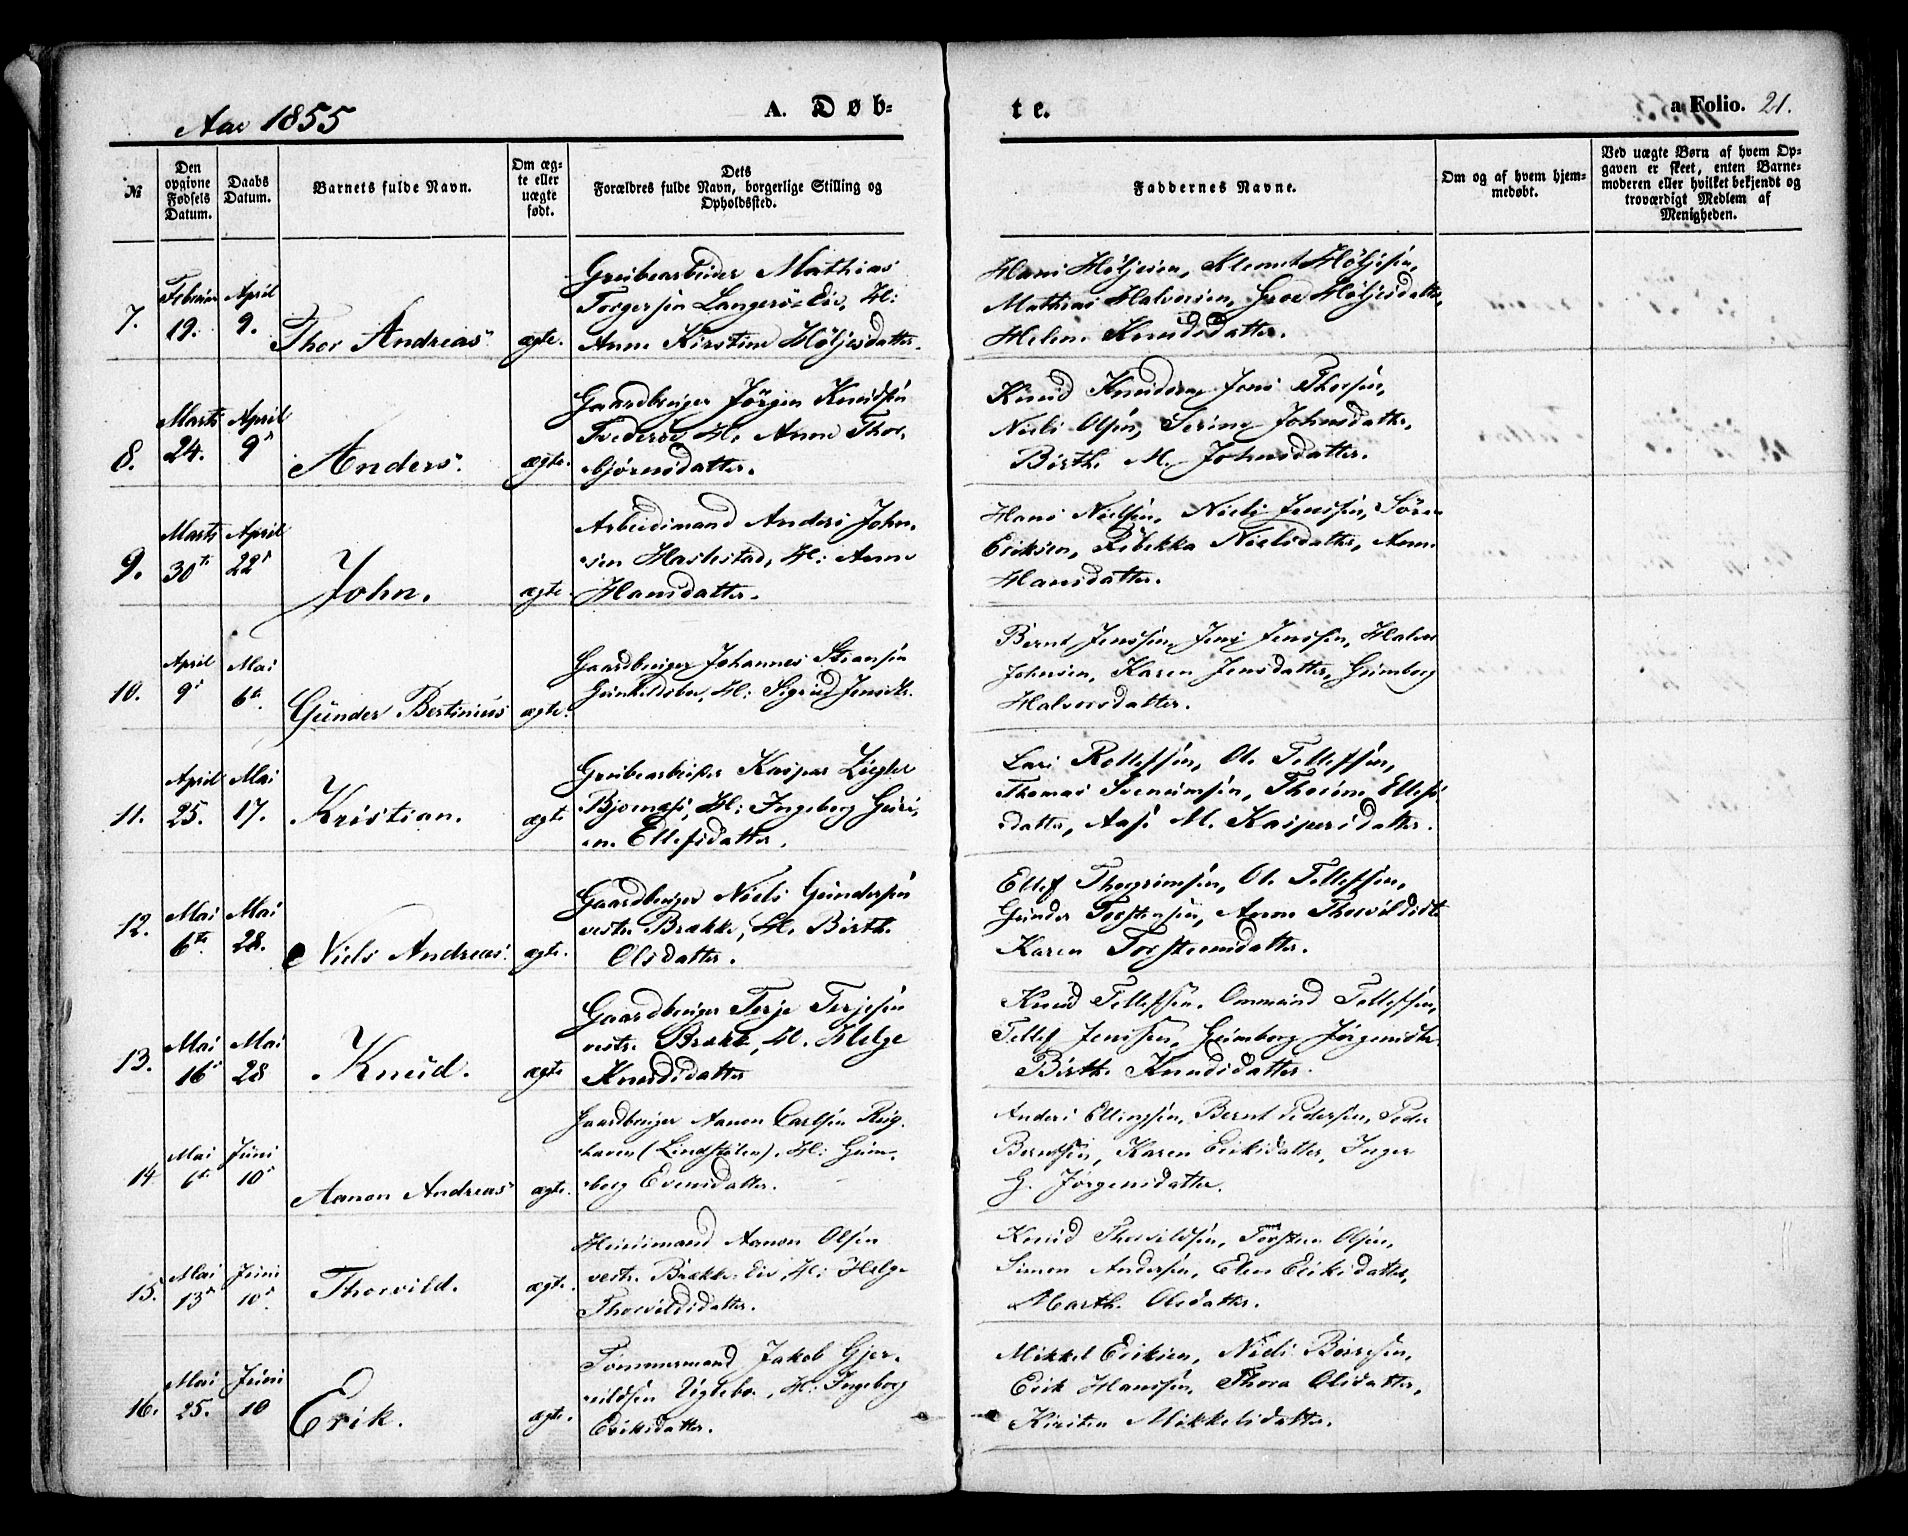 Aar 1855
A. Døb-
te.
a Folio. 21.
№
Den opgivne Fødsels Datum.
Daabs Datum.
Barnets fulde Navn.
Om ægte eller uægte født.
Dets Forældres fulde Navn, borgerlige Stilling og Opholdssted.
Faddernes Navne.
Om og af hvem hjemmedøbt.
Ved uægte Børn af hvem Opgaven er skeet, enten Barnemoderen eller hvilket bekjendt og troværdigt Medlem af Menigheden.
7.
Februar 19.
April 9.
Thor Andreas
ægte.
Grubearbeider Mathias
Torgersen Langersø Eie, H:
Anne Kirstine Høljesdatter.
Hans Høljesen, Klemet Høljesen,
Mathias Halvorsen, Groe Høljesdatter,
Helene Knudsdatter.
8.
Marts 24.
April 9
Anders.
ægte.
Gaardbruger Jørgen Knudsen
H. Anne Thor-
bjørnsdatter.
Knud Knudsen Jens Thorsen,
Niels Olsen, Serine Johnsdatter,
Birthe M. Johnsdatter.
9.
Marts 30te
April 22
John.
ægte
Arbeidsmand Anders John-
sen Haslestad, H: Anne
Hansdatter.
Hans Nielsen, Niels Jenssen, Søren
Eriksen, Rebekka Nielsdatter, Anne
Hansdatter.
10.
April 9
Mai 6te
Gunder Bertinius
ægte.
Gaardbruger Johannes Steansen
H: Sigrid Jensdtr.
Bernt Jenssen, Jens Jenssen, Halvor
Johnsen, Karen Jensdatter, Gunborg
Halvorsdatter.
11.
April 25.
Mai 17.
Kristian.
ægte
Grubearbeider Kasper Ziegler
Bjornæs, H: Ingeborg Guri-
ne Ellefsdatter.
Lars Rollefsen, Ole Tellefsen,
Thomas Thorine Ellefs-
datter, Aase M. Kaspersdatter.
12.
Mai 6te
Mai 28.
Niels Andreas.
ægte.
Gaardbruger Niels Gundersen
vestre Brække, H. Birthe
Olsdatter.
Ellef Thorgrimsen, Ole Tellefsen,
Gunder Torstensen, Anne Thorvildsdtr
Karen Torstensdatter.
13.
Mai 16
Mai 28
Knud.
ægte
Gaardbruger Terje Terjesen
vestre Brække, H. Helge
Knudsdatter
Knud Tellefsen, Ommund Tellefsen,
Tellef Jenssen, Gunborg Jørgensdtr.
Birthe Knudsdatter.
14
Mai 6te
Juni 10
Aanon Andreas
ægte.
Gaardbruger Aanon Carlsen Rug-
haven (Lindstølen). H: Gun-
borg Evensdatter.
Anders Ellingsen, Bernt Pedersen, Peder
Berntsen, Karen Eriksdatter, Inger
G. Jørgensdatter.
15.
Mai 13
Juni 10
Thorvild.
ægte.
Huusmand Aanon Olsen
vestre Brække Eie, H: Helge
Thorvildsdatter.
Knud Thorvildsen, Torsten Olsen,
Simon Andersen, Elen Eriksdatter,
Marthe Olsdatter.
16.
Mai 25.
Juni 10
Erik.
ægte.
Tømmermand Jakob Gjer-
uldsen Viglebo, H: Ingeborg
Eriksdatter.
Mikkel Eriksen, Niels Børresen,
Erik Hanssen, Thora Olsdatter,
Kirsten Mikkelsdatter.